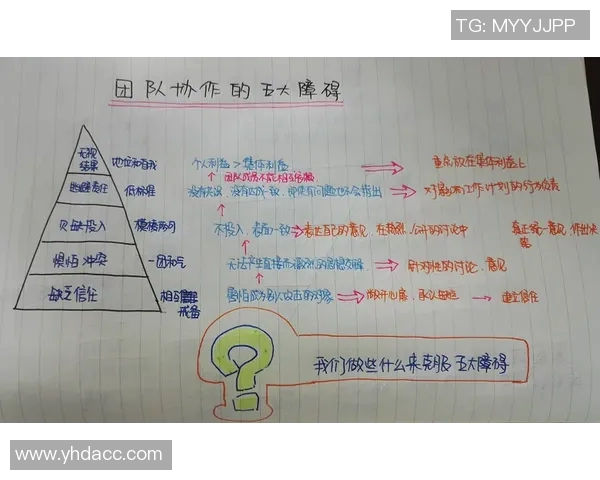 TG: MYYJJPP
团队协作的五大障碍
无视结果 地位和自我 个人利益 > 集体利益 重点放在集体利益上
团队成员不能相互
逃避责任 低标准 没有达成一致，即使有问题也不会指出 对影响工作计划的行为负责
欠缺投入 模棱两可 不投入，表面一致 表达自己的意见，在热烈、公开的讨论中 真正统一意见，作出决定
惧怕冲突 一团和气 无法产生直接而激烈的思想交锋 针对性的讨论、意见
缺乏信任 相互戒备 害怕成为别人攻击的对象 敞开心扉，承认缺点 建立信任
?
我们做些什么来克服五大障碍
www.yhdacc.com